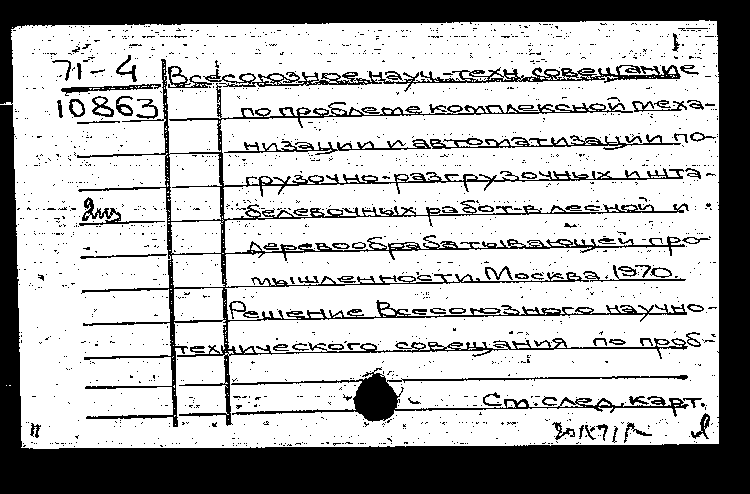 1
71-4 Всесоюзное науч.-техн. совещание
10863 по проблеме комплексной меха-
низации и автоматизации по-
грузочно-разгрузочных и шта-
белевочных работ в лесной и
деревообрабатывающей про-
мышленности. Москва. 1970.
Решение Всесоюзного научно-
технического совещания по проб-
См. след. карт.